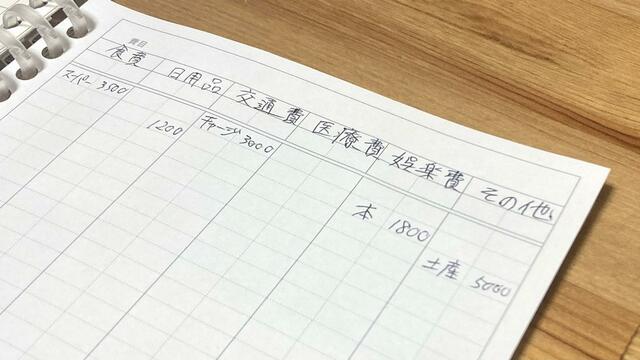 費目
食費 日用品 交通費 医療費 娯楽費 その他
スーパー 3500
1200 チャージ 3000
本 1800
土産 5000